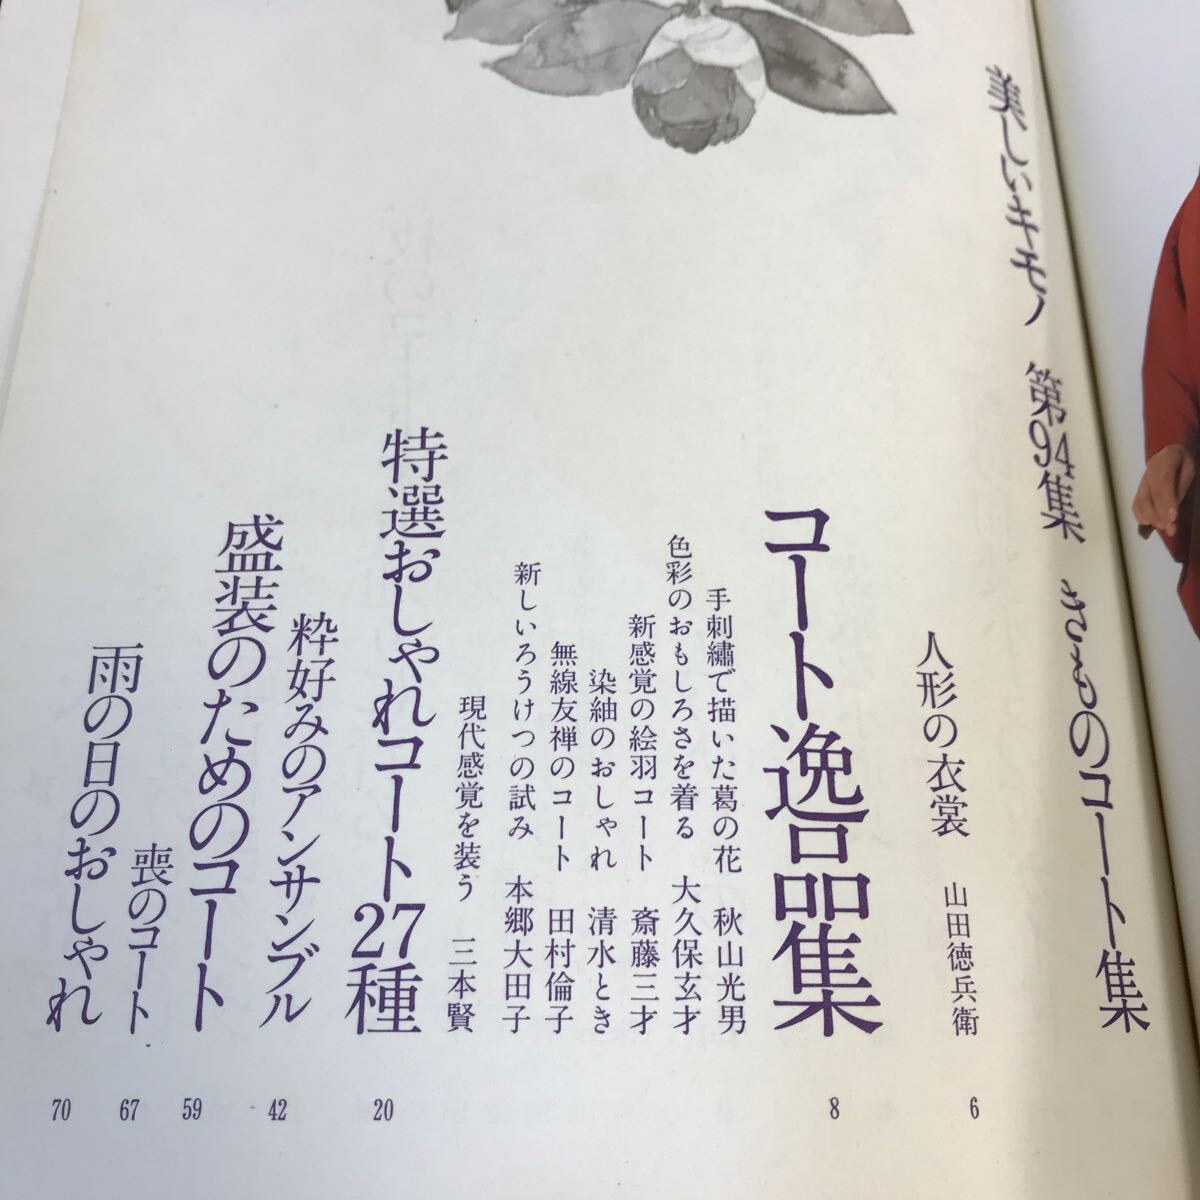 美しいキモノ 第94集 きものコート集
人形の衣裳 山田徳兵衛 6
コート逸品集 8
手刺繡で描いた葛の花 秋山光男
色彩のおもしろさを着る 大久保玄才
新感覚の絵羽コート 斎藤三才
染紬のおしゃれ 清水とき
無線友禅のコート 田村倫子
新しいろうけつの試み 本郷大田子
現代感覚を装う 三本賢
特選おしゃれコート27種 20
粋好みのアンサンブル 42
盛装のためのコート 59
喪のコート 67
雨の日のおしゃれ 70